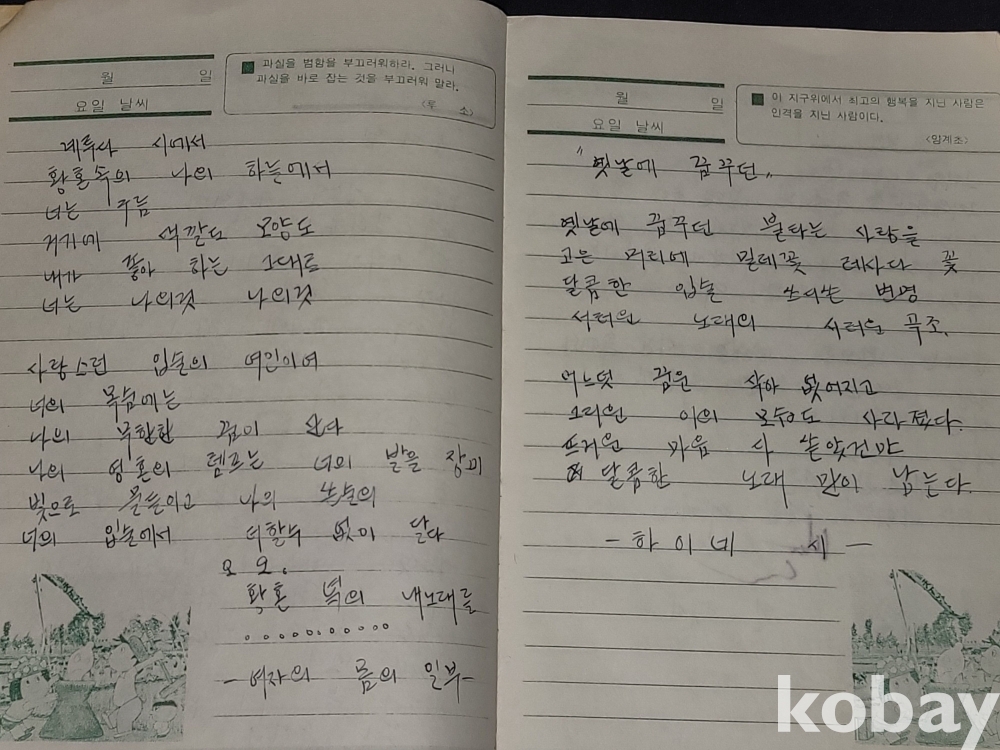 월 일
요일 날씨
과실을 범함을 부끄러워하라. 그러나
과실을 바로 잡는 것을 부끄러워 말라.
〈루 소〉
시에서
황혼속의 나의 하늘에서
너는 구름
거기에 색깔도 모양도
내가 좋아 하는 그대로
너는 나의것 나의것
사랑스런 입술의 여인이여
너의 목숨에는
나의 무한한 꿈이 산다
나의 영혼의 템프는 너의 발을 장미
빛으로 물들이고 나의
너의 입술에서 더할수 없이 달다
오 오.
황혼 녘의 내노래를
...........
-여자의 몸의 일부-
월 일
요일 날씨
이 지구위에서 최고의 행복을 지닌 사람은
인격을 지닌 사람이다.
〈임계조〉
"옛날에 꿈꾸던"
옛날에 꿈꾸던 불타는 사랑을
고은 머리에 밀레꽃 레사다 꽃
달콤한 입술 쓰디쓴 변명
서러운 노래의 서러운 곡조.
어느덧 꿈은 삭아 없어지고
그리운 이의 모습도 사라졌다.
뜨거운 마음 다 쏟았건만
달콤한 노래 만이 남는다.
-하이네 시-
kobay